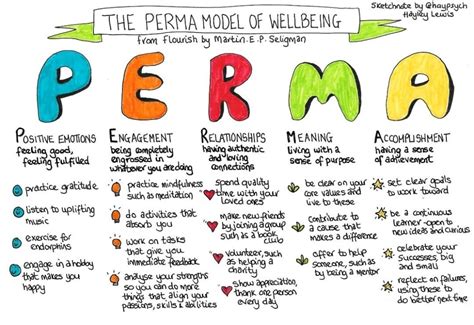 THE PERMA MODEL OF WELLBEING
from Flourish by Martin.E.P.Seligman
Sketchnote by @haypsych
Hayley Lewis
PERMA
POSITIVE EMOTIONS
feeling good,
feeling fulfilled
practice gratitude
listen to uplifting
music
exercise for
endorphins
engage in a hobby
that makes you
happy
ENGAGEMENT
being completely
engrossed in
whatever you are doing
practice mindfulness
such as meditation
do activities that
absorb you
work on tasks
that give you
immediate feedback
analyse your strengths
so you can do more
things that align your
passions, skills & abilities
RELATIONSHIPS
having authentic
and loving
connections
spend quality
time with your
loved ones
make new friends
by joining a group
such as a book
club
volunteer, such
as helping a
charity
show appreciation,
thank one person
every day
MEANING
living with a
sense of purpose
be clear on your
core values and
live to these
contribute to
a cause that
makes a difference
offer to help
someone, such as
by being a mentor
ACCOMPLISHMENT
having a sense
of achievement
set clear goals
to work toward
be a continuous
learner - open to
new ideas and curious
celebrate your
successes, big
and small
reflect on failures,
using these to
do better next time